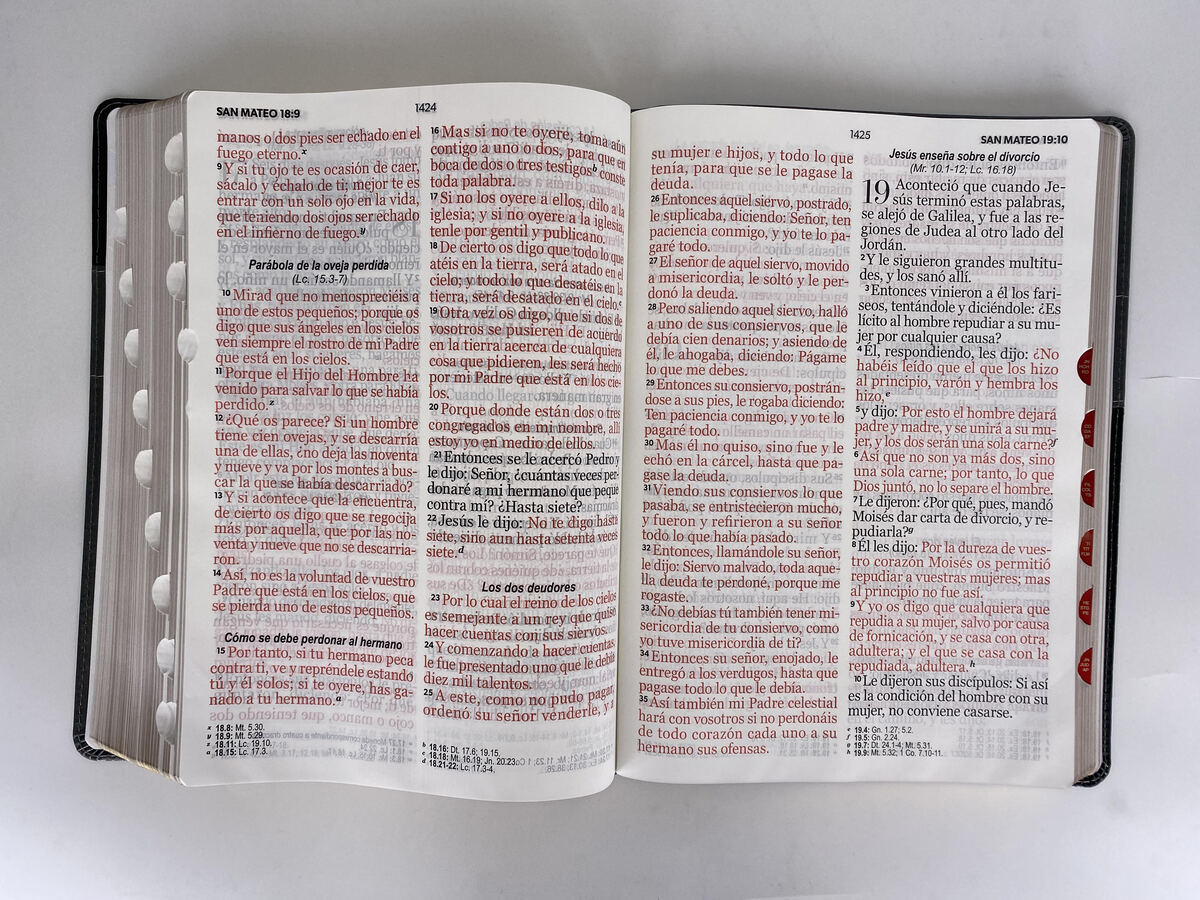 SAN MATEO 18:9
1424
manos o dos pies ser echado en el
fuego eterno.x
9 Y si tu ojo te es ocasión de caer,
sácalo y échalo de ti; mejor te es
entrar con un solo ojo en la vida,
que teniendo dos ojos ser echado
en el infierno de fuego.y
Parábola de la oveja perdida
(Lc. 15.3-7)
10 Mirad que no menospreciéis a
uno de estos pequeños; porque os
digo que sus ángeles en los cielos
ven siempre el rostro de mi Padre
que está en los cielos.
11 Porque el Hijo del Hombre ha
venido para salvar lo que se había
perdido.z
12 ¿Qué os parece? Si un hombre
tiene cien ovejas, y se descarría
una de ellas, ¿no deja las noventa
y nueve y va por los montes a bus-
car la que se había descarriado?
13 Y si acontece que la encuentra,
de cierto os digo que se regocija
más por aquella, que por las no-
venta y nueve que no se descarria-
ron.
14 Así, no es la voluntad de vuestro
Padre que está en los cielos, que
se pierda uno de estos pequeños.
Cómo se debe perdonar al hermano
15 Por tanto, si tu hermano peca
contra ti, ve y repréndele estando
tú y él solos; si te oyere, has ga-
nado a tu hermano.a
x 18.8: Mt. 5.30.
y 18.9: Mt. 5.29.
z 18.11: Lc. 19.10.
a 18.15: Lc. 17.3.
16 Mas si no te oyere, toma aún
contigo a uno o dos, para que en
boca de dos o tres testigosb conste
toda palabra.
17 Si no los oyere a ellos, dilo a la
iglesia; y si no oyere a la iglesia,
tenle por gentil y publicano.
18 De cierto os digo que todo lo que
atéis en la tierra, será atado en el
cielo; y todo lo que desatéis en la
tierra, será desatado en el cielo.c
19 Otra vez os digo, que si dos de
vosotros se pusieren de acuerdo
en la tierra acerca de cualquiera
cosa que pidieren, les será hecho
por mi Padre que está en los cie-
los.
20 Porque donde están dos o tres
congregados en mi nombre, allí
estoy yo en medio de ellos.
21 Entonces se le acercó Pedro y
le dijo: Señor, ¿cuántas veces per-
donaré a mi hermano que peque
contra mí? ¿Hasta siete?
22 Jesús le dijo: No te digo hasta
siete, sino aun hasta setenta veces
siete.d
Los dos deudores
23 Por lo cual el reino de los cielos
es semejante a un rey que quiso
hacer cuentas con sus siervos.
24 Y comenzando a hacer cuentas,
le fue presentado uno que le debía
diez mil talentos.
25 A este, como no pudo pagar,
ordenó su señor venderle, y a
b 18.16: Dt. 17.6; 19.15.
c 18.18: Mt. 16.19; Jn. 20.23.
d 18.21-22: Lc. 17.3-4.
1425
SAN MATEO 19:10
su mujer e hijos, y todo lo que
tenía, para que se le pagase la
deuda.
26 Entonces aquel siervo, postrado,
le suplicaba, diciendo: Señor, ten
paciencia conmigo, y yo te lo pa-
garé todo.
27 El señor de aquel siervo, movido
a misericordia, le soltó y le per-
donó la deuda.
28 Pero saliendo aquel siervo, halló
a uno de sus consiervos, que le
debía cien denarios; y asiendo de
él, le ahogaba, diciendo: Págame
lo que me debes.
29 Entonces su consiervo, postrán-
dose a sus pies, le rogaba diciendo:
Ten paciencia conmigo, y yo te lo
pagaré todo.
30 Mas él no quiso, sino fue y le
echó en la cárcel, hasta que pa-
gase la deuda.
31 Viendo sus consiervos lo que
pasaba, se entristecieron mucho,
y fueron y refirieron a su señor
todo lo que había pasado.
32 Entonces, llamándole su señor,
le dijo: Siervo malvado, toda aque-
lla deuda te perdoné, porque me
rogaste.
33 ¿No debías tú también tener mi-
sericordia de tu consiervo, como
yo tuve misericordia de ti?
34 Entonces su señor, enojado, le
entregó a los verdugos, hasta que
pagase todo lo que le debía.
35 Así también mi Padre celestial
hará con vosotros si no perdonáis
de todo corazón cada uno a su
hermano sus ofensas.
Jesús enseña sobre el divorcio
(Mr. 10.1-12; Lc. 16.18)
19 Aconteció que cuando Je-
sús terminó estas palabras,
se alejó de Galilea, y fue a las re-
giones de Judea al otro lado del
Jordán.
2 Y le siguieron grandes multitu-
des, y los sanó allí.
3 Entonces vinieron a él los fari-
seos, tentándole y diciéndole: ¿Es
lícito al hombre repudiar a su mu-
jer por cualquier causa?
4 Él, respondiendo, les dijo: ¿No
habéis leído que el que los hizo
al principio, varón y hembra los
hizo,e
5 y dijo: Por esto el hombre dejará
padre y madre, y se unirá a su mu-
jer, y los dos serán una sola carne?f
6 Así que no son ya más dos, sino
una sola carne; por tanto, lo que
Dios juntó, no lo separe el hombre.
7 Le dijeron: ¿Por qué, pues, mandó
Moisés dar carta de divorcio, y re-
pudiarla?g
8 Él les dijo: Por la dureza de vues-
tro corazón Moisés os permitió
repudiar a vuestras mujeres; mas
al principio no fue así.
9 Y yo os digo que cualquiera que
repudia a su mujer, salvo por causa
de fornicación, y se casa con otra,
adultera; y el que se casa con la
repudiada, adultera.h
10 Le dijeron sus discípulos: Si así
es la condición del hombre con su
mujer, no conviene casarse.
e 19.4: Gn. 1.27; 5.2.
f 19.5: Gn. 2.24.
g 19.7: Dt. 24.1-4; Mt. 5.31.
h 19.9: Mt. 5.32; 1 Co. 7.10-11.